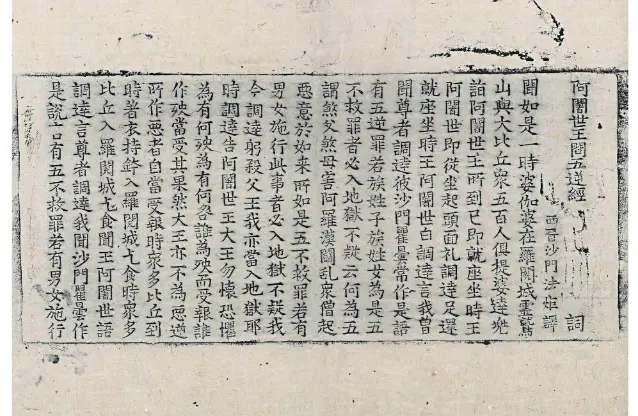 阿闍世王問五逆經 詞
西晉沙門法炬譯
聞如是一時婆伽婆在羅閱城靈鷲
山與大比丘衆五百人俱提婆達兠
詣阿闍世王所到已即就座坐時王
阿闍世即從坐起頭面礼調達足還
就座坐時王阿闍世白調達言我曾
聞尊者調達彼沙門瞿曇常作是語
有五逆罪若族姓子族姓女為是五
不救罪者必入地獄不疑云何為五
謂煞父煞母害阿羅漢鬪亂衆僧起
惡意於如来所如是五不救罪若有
男女施行此事者必入地獄不疑我
今調達躬殺父王我亦當入地獄耶
時調達告阿闍世王大王勿懷恐懼
為有何殃為有何咎誰為殃而受報誰
作殃當受其果然大王亦不為惡逆
所作惡者自當受報時衆多比丘到
時著衣持鉢入羅閱城乞食時衆多
比丘入羅閱城乞食聞王阿闍世語
調達言尊者調達我聞沙門瞿曇作
是說言有五不救罪若有男女施行